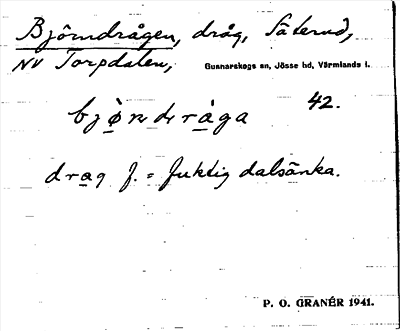 Björndrågen, dråg, Säterud,
NV Torpdalen, Gunnarskogs sn, Jösse hd, Värmlands l.
42.
bjò̱n dr a̱ga
dra̱g f. = fuktig dalsänka.
P. O. GRANÉR 1941.